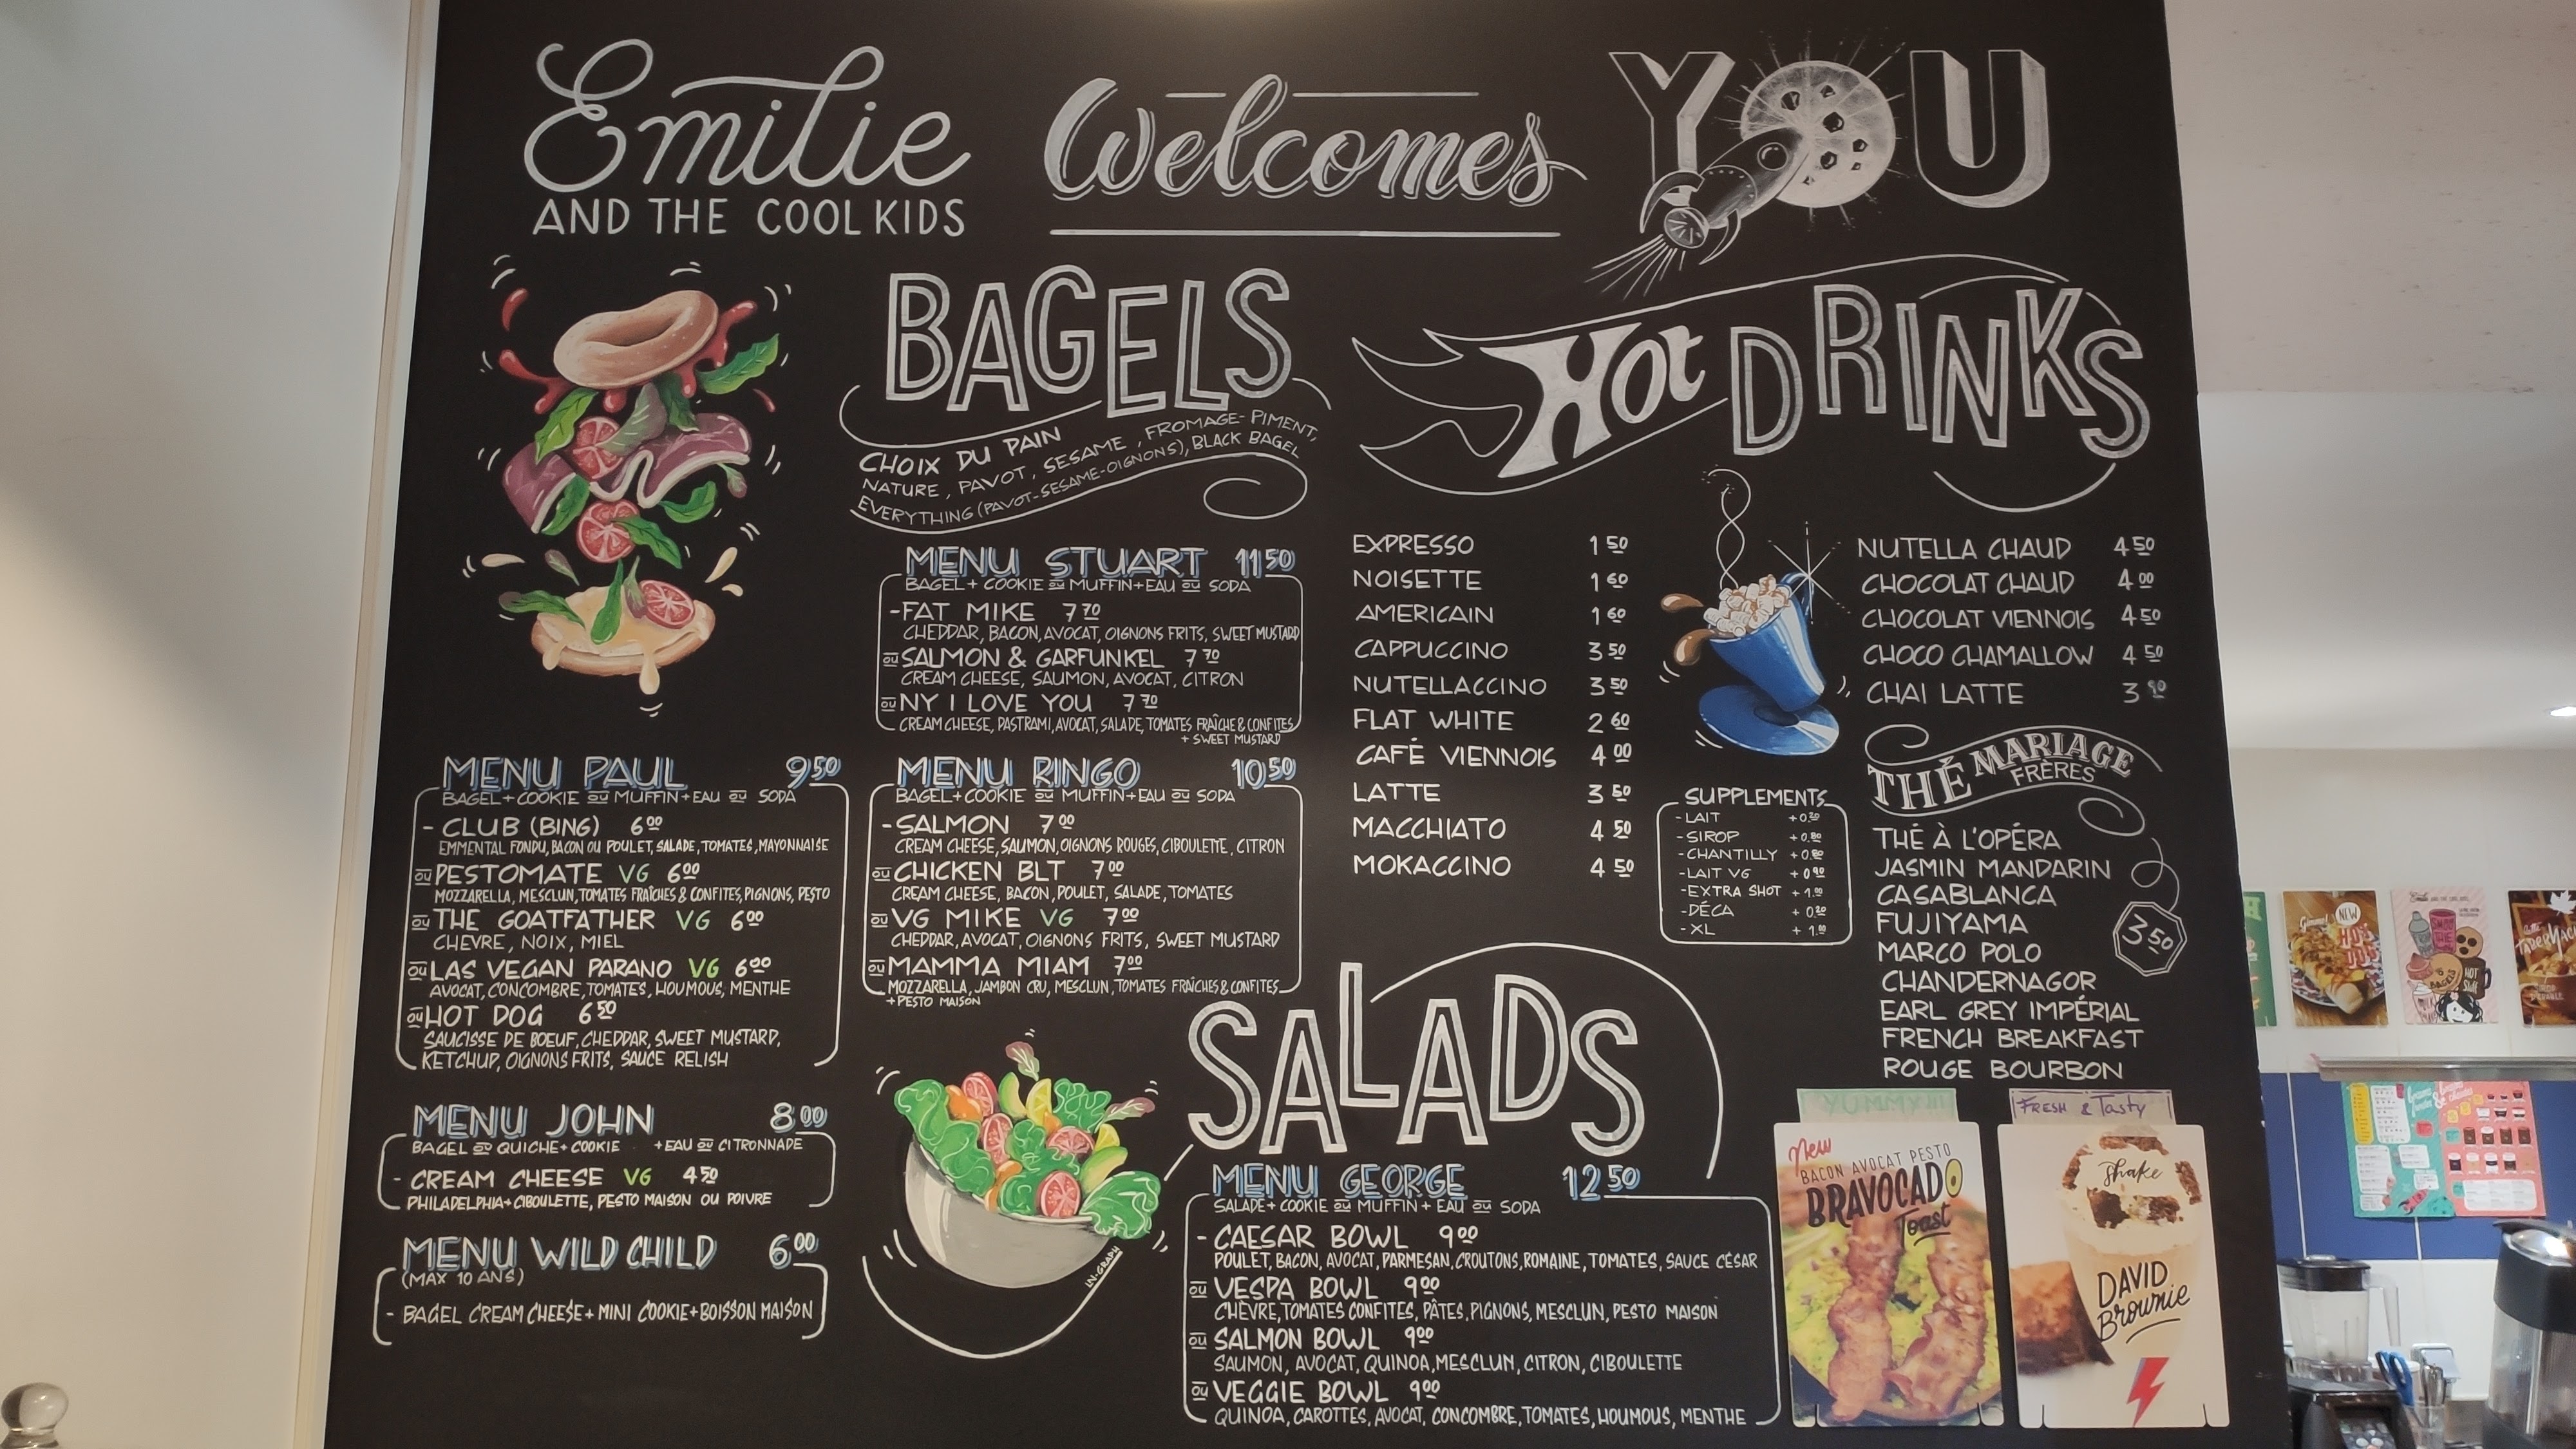 Emilie
AND THE COOL KIDS
Welcomes
YOU
BAGELS
CHOIX DU PAIN
NATURE, PAVOT, SESAME, FROMAGE-PIMENT,
EVERYTHING (PAVOT-SESAME-OIGNONS), BLACK BAGEL
MENU STUART 11 50
BAGEL + COOKIE OU MUFFIN + EAU OU SODA
- FAT MIKE 7 70
CHEDDAR, BACON, AVOCAT, OIGNONS FRITS, SWEET MUSTARD
OU SALMON & GARFUNKEL 7 70
CREAM CHEESE, SAUMON, AVOCAT, CITRON
OU NY I LOVE YOU 7 70
CREAM CHEESE, PASTRAMI, AVOCAT, SALADE, TOMATES FRAÎCHE & CONFITES
+ SWEET MUSTARD
MENU PAUL 9 50
BAGEL + COOKIE OU MUFFIN + EAU OU SODA
- CLUB (BING) 6 00
EMMENTAL FONDU, BACON OU POULET, SALADE, TOMATES, MAYONNAISE
OU PESTOMATE VG 6 00
MOZZARELLA, MESCLUN, TOMATES FRAÎCHES & CONFITES, PIGNONS, PESTO
OU THE GOATFATHER VG 6 00
CHEVRE, NOIX, MIEL
OU LAS VEGAN PARANO VG 6 00
AVOCAT, CONCOMBRE, TOMATES, HOUMOUS, MENTHE
OU HOT DOG 6 50
SAUCISSE DE BOEUF, CHEDDAR, SWEET MUSTARD,
KETCHUP, OIGNONS FRITS, SAUCE RELISH
MENU RINGO 10 50
BAGEL + COOKIE OU MUFFIN + EAU OU SODA
- SALMON 7 00
CREAM CHEESE, SAUMON, OIGNONS ROUGES, CIBOULETTE, CITRON
OU CHICKEN BLT 7 00
CREAM CHEESE, BACON, POULET, SALADE, TOMATES
OU VG MIKE VG 7 00
CHEDDAR, AVOCAT, OIGNONS FRITS, SWEET MUSTARD
OU MAMMA MIAM 7 00
MOZZARELLA, JAMBON CRU, MESCLUN, TOMATES FRAÎCHES & CONFITES
+ PESTO MAISON
MENU JOHN 8 00
BAGEL OU QUICHE + COOKIE + EAU OU CITRONNADE
- CREAM CHEESE VG 4 50
PHILADELPHIA + CIBOULETTE, PESTO MAISON OU POIVRE
MENU WILD CHILD 6 00
(MAX 10 ANS)
- BAGEL CREAM CHEESE + MINI COOKIE + BOISSON MAISON
LN-GRAPH
SALADS
MENU GEORGE 12 50
SALADE + COOKIE OU MUFFIN + EAU OU SODA
- CAESAR BOWL 9 00
POULET, BACON, AVOCAT, PARMESAN, CROUTONS, ROMAINE, TOMATES, SAUCE CÉSAR
OU VESPA BOWL 9 00
CHÈVRE, TOMATES CONFITES, PÂTES, PIGNONS, MESCLUN, PESTO MAISON
OU SALMON BOWL 9 00
SAUMON, AVOCAT, QUINOA, MESCLUN, CITRON, CIBOULETTE
OU VEGGIE BOWL 9 00
QUINOA, CAROTTES, AVOCAT, CONCOMBRE, TOMATES, HOUMOUS, MENTHE
Hot DRINKS
EXPRESSO 1 50
NOISETTE 1 60
AMERICAIN 1 60
CAPPUCCINO 3 50
NUTELLACCINO 3 50
FLAT WHITE 2 60
CAFÉ VIENNOIS 4 00
LATTE 3 50
MACCHIATO 4 50
MOKACCINO 4 50
NUTELLA CHAUD 4 50
CHOCOLAT CHAUD 4 00
CHOCOLAT VIENNOIS 4 50
CHOCO CHAMALLOW 4 50
CHAI LATTE 3 90
SUPPLEMENTS
- LAIT
- SIROP
- CHANTILLY
- LAIT VG
- EXTRA SHOT + 1.00
- DÉCA
- XL + 1.00
THÉ MARIAGE
FRÈRES
THÉ À L'OPÉRA
JASMIN MANDARIN
CASABLANCA
FUJIYAMA
MARCO POLO
CHANDERNAGOR
EARL GREY IMPÉRIAL
FRENCH BREAKFAST
ROUGE BOURBON
3 50
New
BACON AVOCAT PESTO
BRAVOCADO
Toast
FRESH & Tasty
Shake
DAVID
Brownie
NEW